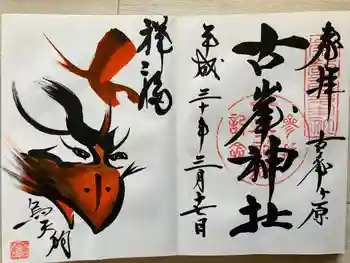 奉拝
古峯ヶ原
古峯神社
平成三十年三月十七日
祥福
烏天狗